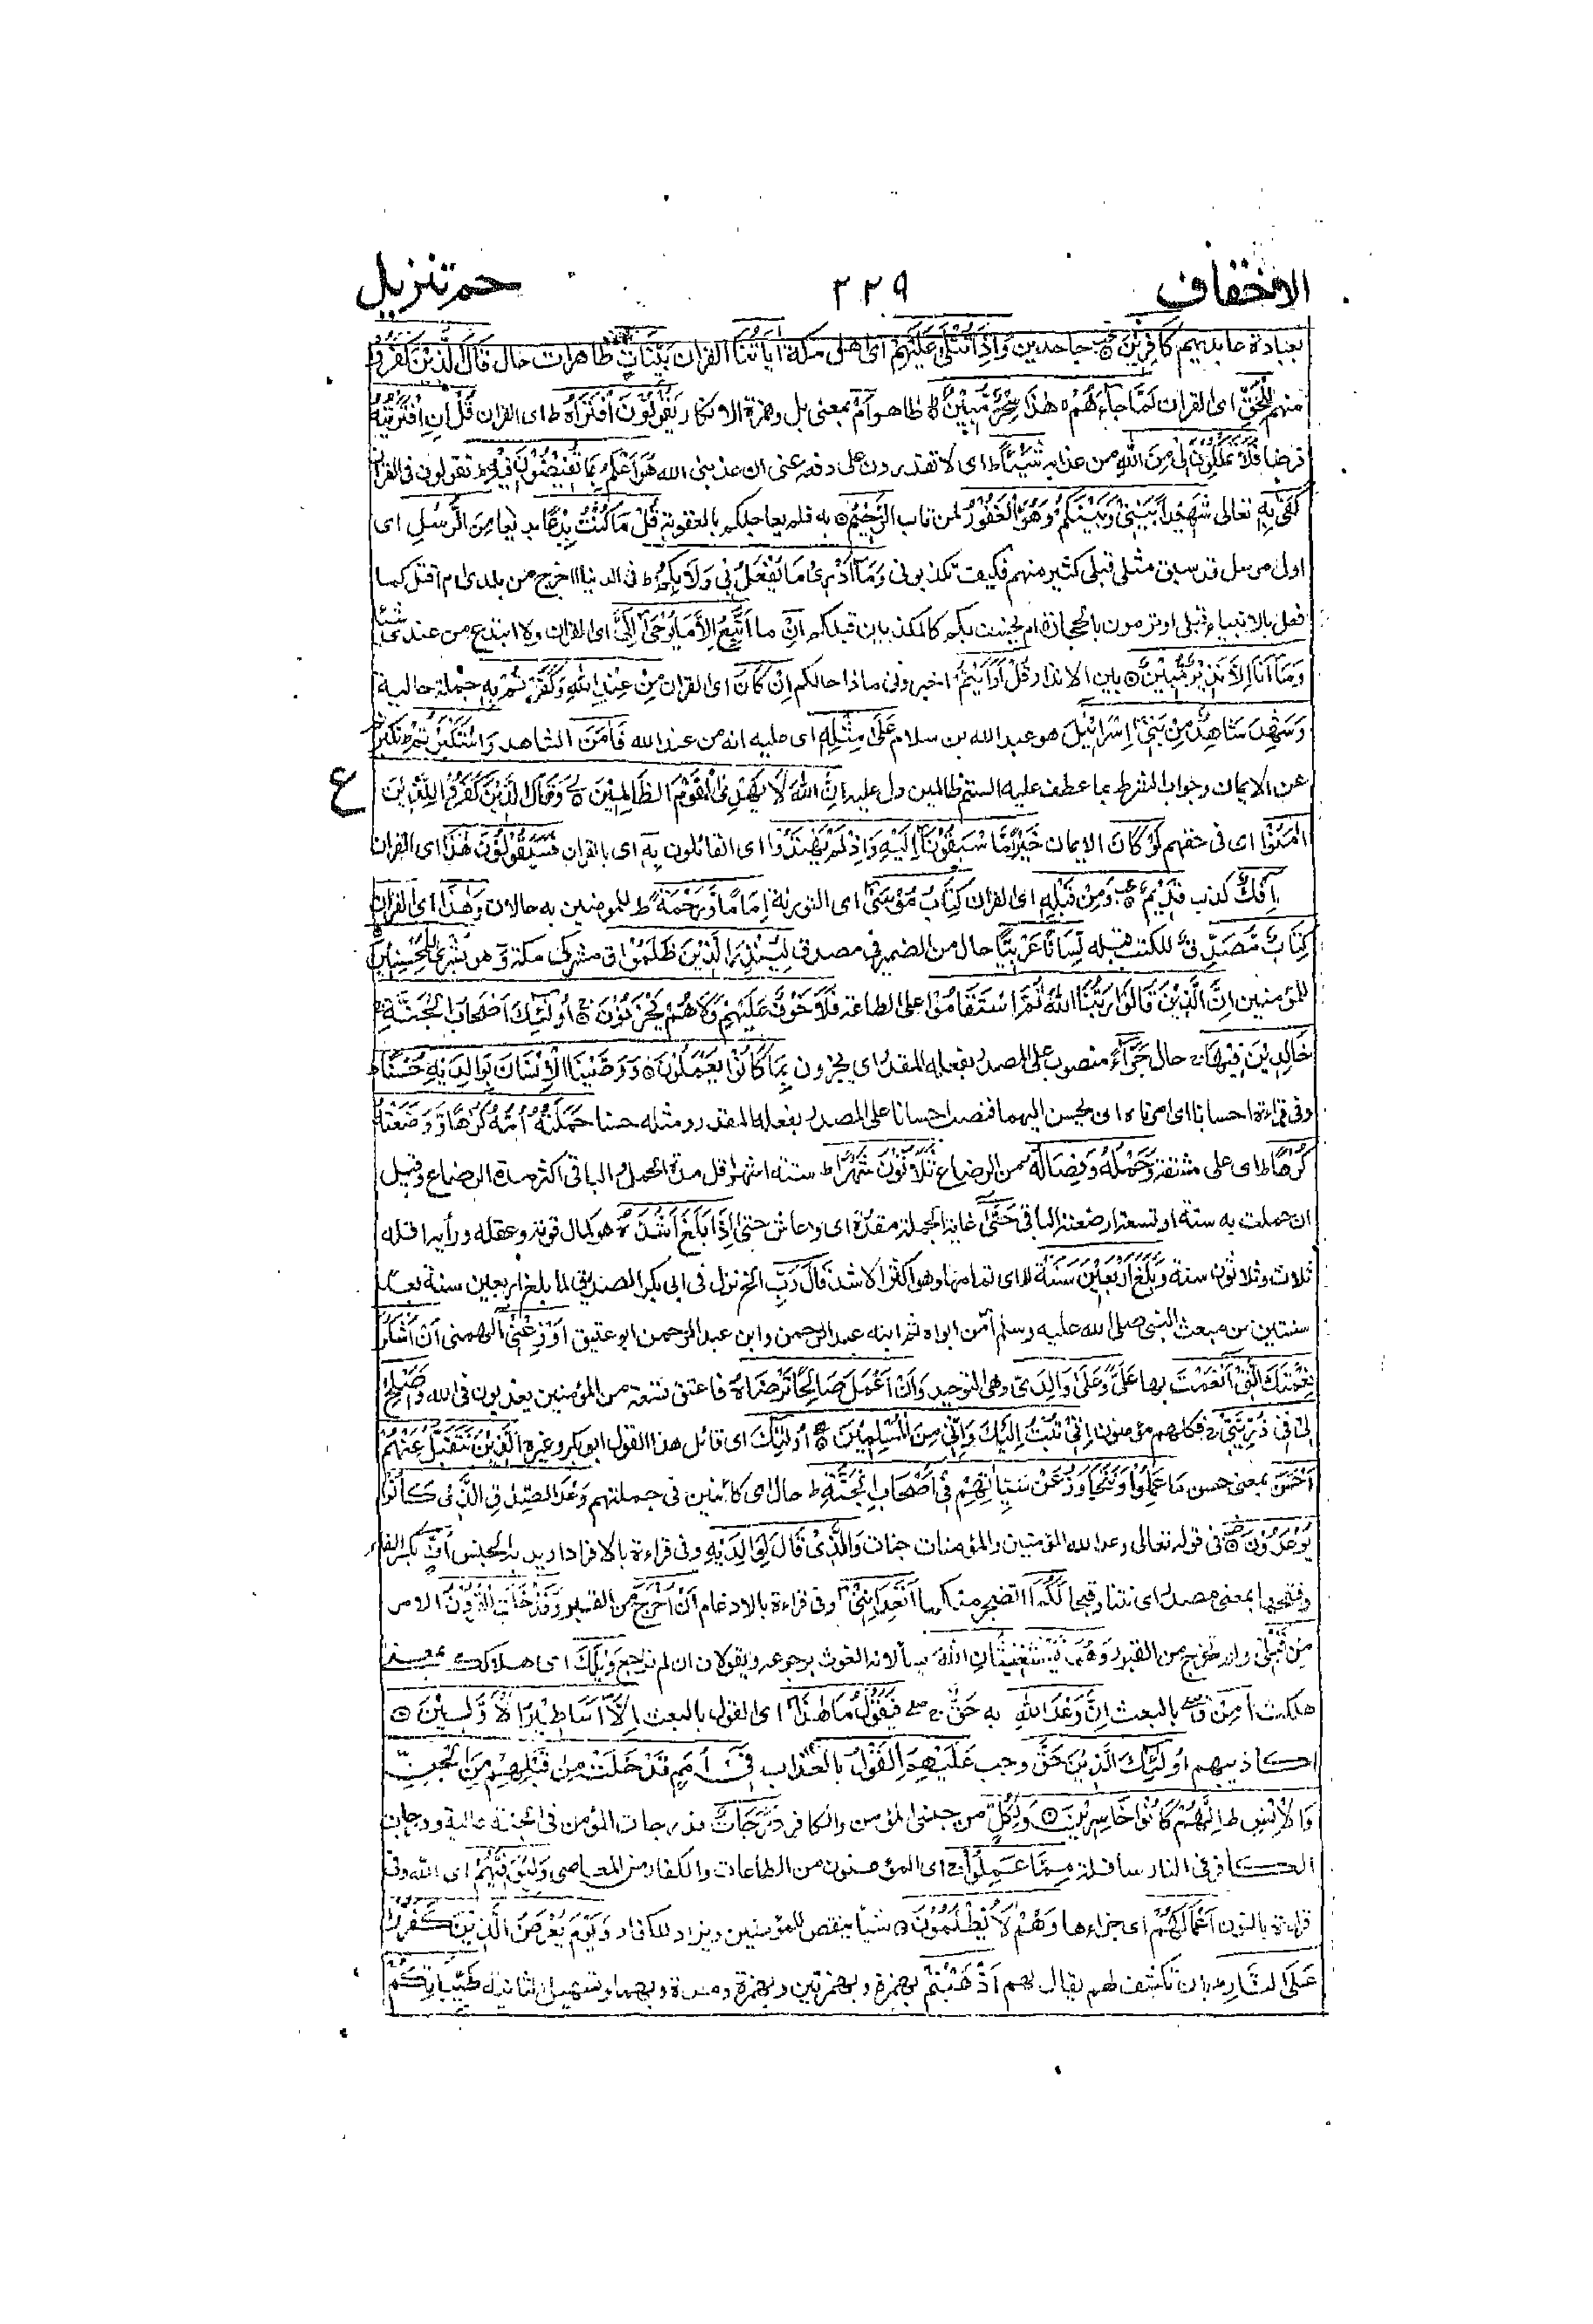 الاحقاف ٢٢٩ حم تنزيل
بعبادة عابديهم كَافِرِيْنَ جاحدين وَاِذَا تُتْلٰى عَلَيْهِمْ اى اهل مكة اٰيَاتُنَا القران بَيِّنَاتٍ ظاهرات حال قَالَ الَّذِيْنَ كَفَرُوْا
منهم لِلْحَقِّ اى القران لَمَّا جَآءَهُمْ هٰذَا سِحْرٌ مُّبِيْنٌ ط ظاهر اَمْ بمعنى بل وهمزة الانكار يَقُوْلُوْنَ افْتَرَاهُ ط اى القران قُلْ اِنِ افْتَرَيْتُهٗ
فرضا فَلَا تَمْلِكُوْنَ لِىْ مِنَ اللّٰهِ من عذابه شَيْـًٔا ط اى لا تقدرون على دفعه عنى ان عذبنى الله هُوَ اَعْلَمُ بِمَا تُفِيْضُوْنَ فِيْهِ ط تقولون فى القران
كَفٰى بِهٖ تعالى شَهِيْدًا بَيْنِىْ وَبَيْنَكُمْ وَهُوَ الْغَفُوْرُ لمن تاب الرَّحِيْمُ ۝ به فلم يعاجلكم بالعقوبة قُلْ مَا كُنْتُ بِدْعًا بديعا مِنَ الرُّسُلِ اى
اول مرسل قد سبق مثلى قبلى كثير منهم فكيف تكذبونى وَمَا اَدْرِىْ مَا يُفْعَلُ بِىْ وَلَا بِكُمْ ط فى الدنيا ااخرج من بلدى ام اقتل كما
فعل بالانبياء قبلى او ترمون بالحجارة ام يخسف بكم كالمكذبين قبلكم اِنْ ما اَتَّبِعُ اِلَّا مَا يُوْحٰى اِلَىَّ اى القران ولا ابتدع من عندى شيئا
وَمَا اَنَا اِلَّا نَذِيْرٌ مُّبِيْنٌ ۝ بين الانذار قُلْ اَرَاَيْتُمْ اخبرونى ماذا حالكم اِنْ كَانَ اى القران مِنْ عِنْدِ اللّٰهِ وَكَفَرْتُمْ بِهٖ جملة حالية
وَشَهِدَ شَاهِدٌ مِّنْ بَنِىْ اِسْرَائِيْلَ هو عبد الله بن سلام عَلٰى مِثْلِهٖ اى عليه انه من عند الله فَاٰمَنَ الشاهد وَاسْتَكْبَرْتُمْ ط تكبرتم
عن الايمان وجواب الشرط بما عطف عليه الستم ظالمين دل عليه اِنَّ اللّٰهَ لَا يَهْدِى الْقَوْمَ الظَّالِمِيْنَ وَقَالَ الَّذِيْنَ كَفَرُوْا لِلَّذِيْنَ ع
اٰمَنُوْا اى فى حقهم لَوْ كَانَ الايمان خَيْرًا مَّا سَبَقُوْنَا اِلَيْهِ وَاِذْ لَمْ يَهْتَدُوْا اى القائلون بِهٖ اى بالقران فَسَيَقُوْلُوْنَ هٰذَا اى القران
اِفْكٌ كذب قَدِيْمٌ وَمِنْ قَبْلِهٖ اى القران كِتَابُ مُوْسٰى اى التورية اِمَامًا وَّرَحْمَةً ط للمومنين به حالان وَهٰذَا اى القران
كِتَابٌ مُّصَدِّقٌ للكتب قبله لِّسَانًا عَرَبِيًّا حال من الضمير فى مصدق لِّيُنْذِرَ الَّذِيْنَ ظَلَمُوْا ق مشركى مكة وَ هو بُشْرٰى لِلْمُحْسِنِيْنَ
للمؤمنين اِنَّ الَّذِيْنَ قَالُوْا رَبُّنَا اللّٰهُ ثُمَّ اسْتَقَامُوْا على الطاعة فَلَا خَوْفٌ عَلَيْهِمْ وَلَا هُمْ يَحْزَنُوْنَ اُولٰئِكَ اَصْحَابُ الْجَنَّةِ
خَالِدِيْنَ فِيْهَا حال جَزَآءً منصوب على المصدر بفعله المقدر اى يجزون بِمَا كَانُوْا يَعْمَلُوْنَ ۝ وَوَصَّيْنَا الْاِنْسَانَ بِوَالِدَيْهِ حُسْنًا ط
وفى قراءة احسانا اى امرناه ان يحسن اليهما فنصب احسانا على المصدر بفعله المقدر ومثله حسنا حَمَلَتْهُ اُمُّهٗ كُرْهًا وَّوَضَعَتْهُ
كُرْهًا ط اى على مشقة وَحَمْلُهٗ وَفِصَالُهٗ من الرضاع ثَلَاثُوْنَ شَهْرًا ط ستة اشهر اقل مدة الحمل والباقى اكثر مدة الرضاع وقيل
ان حملت به ستة او تسعة ارضعته الباقى حَتّٰى غاية لجملة مقدرة اى وعاش حتى اِذَا بَلَغَ اَشُدَّهٗ هو كمال قوته وعقله ورأيه اقله
ثلاث وثلاثون سنة وَبَلَغَ اَرْبَعِيْنَ سَنَةً لا اى تمامها وهو اكثر الاشد قَالَ رَبِّ الخ نزل فى ابى بكر الصديق لما بلغ اربعين سنة بعد
سنتين من مبعث النبى صلى الله عليه وسلم اٰمن ابواه ثم ابنه عبد الرحمن وابن عبد الرحمن ابو عتيق اَوْزِعْنِىْ الهمنى اَنْ اَشْكُرَ
نِعْمَتَكَ الَّتِىْ اَنْعَمْتَ بها عَلَىَّ وَعَلٰى وَالِدَىَّ وهى التوحيد وَاَنْ اَعْمَلَ صَالِحًا تَرْضَاهُ فاعتق تسعة من المؤمنين يعذبون فى الله وَاَصْلِحْ
لِىْ فِىْ ذُرِّيَّتِىْ فكلهم مؤمنون اِنِّىْ تُبْتُ اِلَيْكَ وَاِنِّىْ مِنَ الْمُسْلِمِيْنَ ۝ اُولٰئِكَ اى قائل هذا القول ابوبكر وغيره الَّذِيْنَ نَتَقَبَّلُ عَنْهُمْ
اَحْسَنَ بمعنى حسن مَا عَمِلُوْا وَنَتَجَاوَزُ عَنْ سَيِّاٰتِهِمْ فِىْ اَصْحَابِ الْجَنَّةِ ط حال اى كائنين فى جملتهم وَعْدَ الصِّدْقِ الَّذِىْ كَانُوْا
يُوْعَدُوْنَ ۝ فى قوله تعالى وعد الله المؤمنين والمؤمنات جنات وَالَّذِىْ قَالَ لِوَالِدَيْهِ وفى قراءة بالافراد اريد به الجنس اُفٍّ بكسر الفاء
وفتحها بمعنى مصدر اى نتنا وقبحا لَّكُمَا اتضجر منكما اَتَعِدَانِنِىْ وفى قراءة بالادغام اَنْ اُخْرَجَ من القبر وَقَدْ خَلَتِ الْقُرُوْنُ الامم
مِنْ قَبْلِىْ ولم تخرج من القبور وَهُمَا يَسْتَغِيْثَانِ اللّٰهَ يسألانه الغوث برجوعه ويقولان ان لم ترجع وَيْلَكَ اى هلاكك بمعنى
هلكت اٰمِنْ بالبعث اِنَّ وَعْدَ اللّٰهِ به حَقٌّ فَيَقُوْلُ مَا هٰذَا اى القول بالبعث اِلَّا اَسَاطِيْرُ الْاَوَّلِيْنَ ۝
اكاذيبهم اُولٰئِكَ الَّذِيْنَ حَقَّ وجب عَلَيْهِمُ الْقَوْلُ بالعذاب فِىْ اُمَمٍ قَدْ خَلَتْ مِنْ قَبْلِهِمْ مِّنَ الْجِنِّ
وَالْاِنْسِ ط اِنَّهُمْ كَانُوْا خَاسِرِيْنَ ۝ وَلِكُلٍّ من جنسى المؤمن والكافر دَرَجَاتٌ فدرجات المؤمن فى الجنة عالية ودرجات
الكافر فى النار سافلة مِمَّا عَمِلُوْا ج اى المؤمنون من الطاعات والكفار من المعاصى وَلِيُوَفِّيَهُمْ اى الله وفى
قراءة بالنون اَعْمَالَهُمْ اى جزاءها وَهُمْ لَا يُظْلَمُوْنَ ۝ شيئا ينقص للمؤمنين ويزاد للكفار وَيَوْمَ يُعْرَضُ الَّذِيْنَ كَفَرُوْا
عَلَى النَّارِ ط بان تكشف لهم يقال لهم اَذْهَبْتُمْ بهمزة وبهمزتين وبهمزة ومدة وبهما وتسهيل الثانية طَيِّبَاتِكُمْ